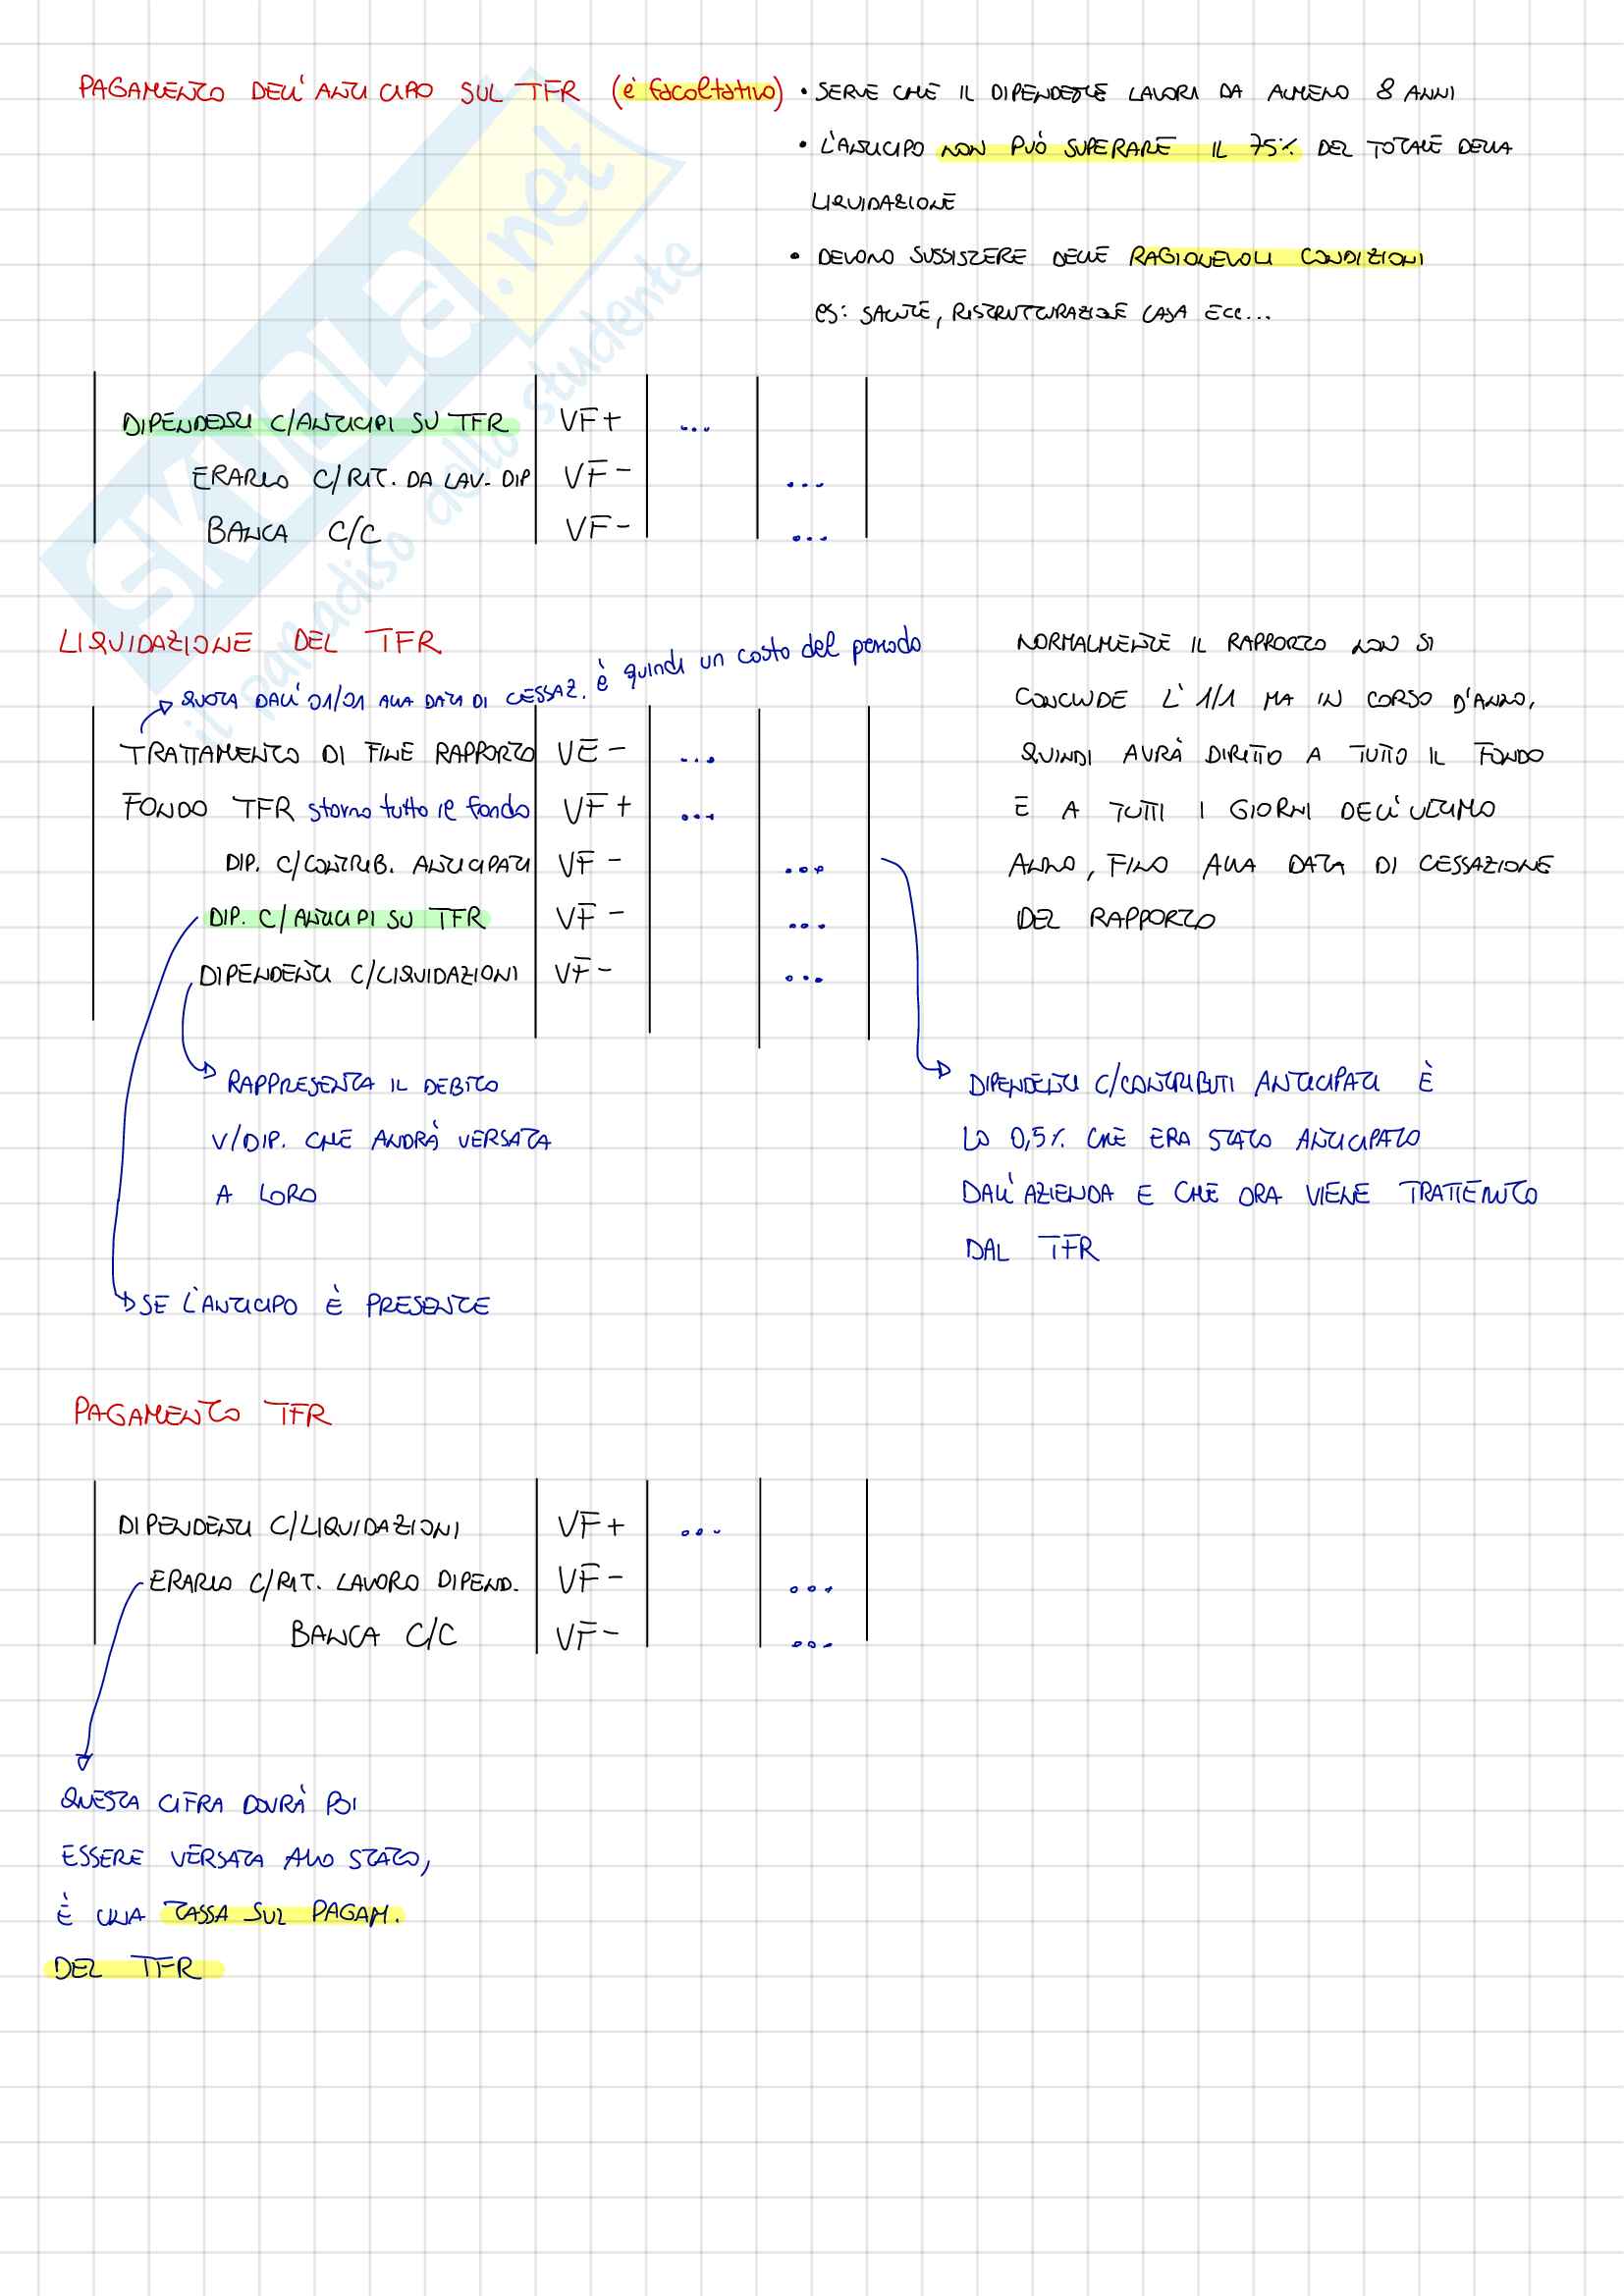 PAGAMENTO DELL'ANTICIPO SUL TFR (è facoltativo) • SERVE CHE IL DIPENDENTE LAVORI DA ALMENO 8 ANNI
• L'ANTICIPO NON PUÒ SUPERARE IL 75% DEL TOTALE DELLA
LIQUIDAZIONE
• DEVONO SUSSISTERE DELLE RAGIONEVOLI CONDIZIONI
es: SALUTE, RISTRUTTURAZIONE CASA ECC...
DIPENDENTI C/ANTICIPI SU TFR VF+ ...
ERARIO C/RIT. DA LAV. DIP VF- ...
BANCA C/C VF- ...
SKUOLA.net
il paradiso dello studente
LIQUIDAZIONE DEL TFR
QUOTA DALL'01/01 ALLA DATA DI CESSAZ. è quindi un costo del periodo
TRATTAMENTO DI FINE RAPPORTO VE- ...
FONDO TFR storno tutto il fondo VF+ ...
DIP. C/CONTRIB. ANTICIPATI VF- ...
DIP. C/ANTICIPI SU TFR VF- ...
DIPENDENTI C/LIQUIDAZIONI VF- ...
NORMALMENTE IL RAPPORTO NON SI
CONCLUDE L'1/1 MA IN CORSO D'ANNO,
QUINDI AVRÀ DIRITTO A TUTTO IL FONDO
E A TUTTI I GIORNI DELL'ULTIMO
ANNO, FINO ALLA DATA DI CESSAZIONE
DEL RAPPORTO
RAPPRESENTA IL DEBITO
V/DIP. CHE ANDRÀ VERSATA
A LORO
DIPENDENTI C/CONTRIBUTI ANTICIPATI È
LO 0,5% CHE ERA STATO ANTICIPATO
DALL'AZIENDA E CHE ORA VIENE TRATTENUTO
DAL TFR
SE L'ANTICIPO È PRESENTE
PAGAMENTO TFR
DIPENDENTI C/LIQUIDAZIONI VF+ ...
ERARIO C/RIT. LAVORO DIPEND. VF- ...
BANCA C/C VF- ...
QUESTA CIFRA DOVRÀ POI
ESSERE VERSATA ALLO STATO,
È UNA TASSA SUL PAGAM.
DEL TFR